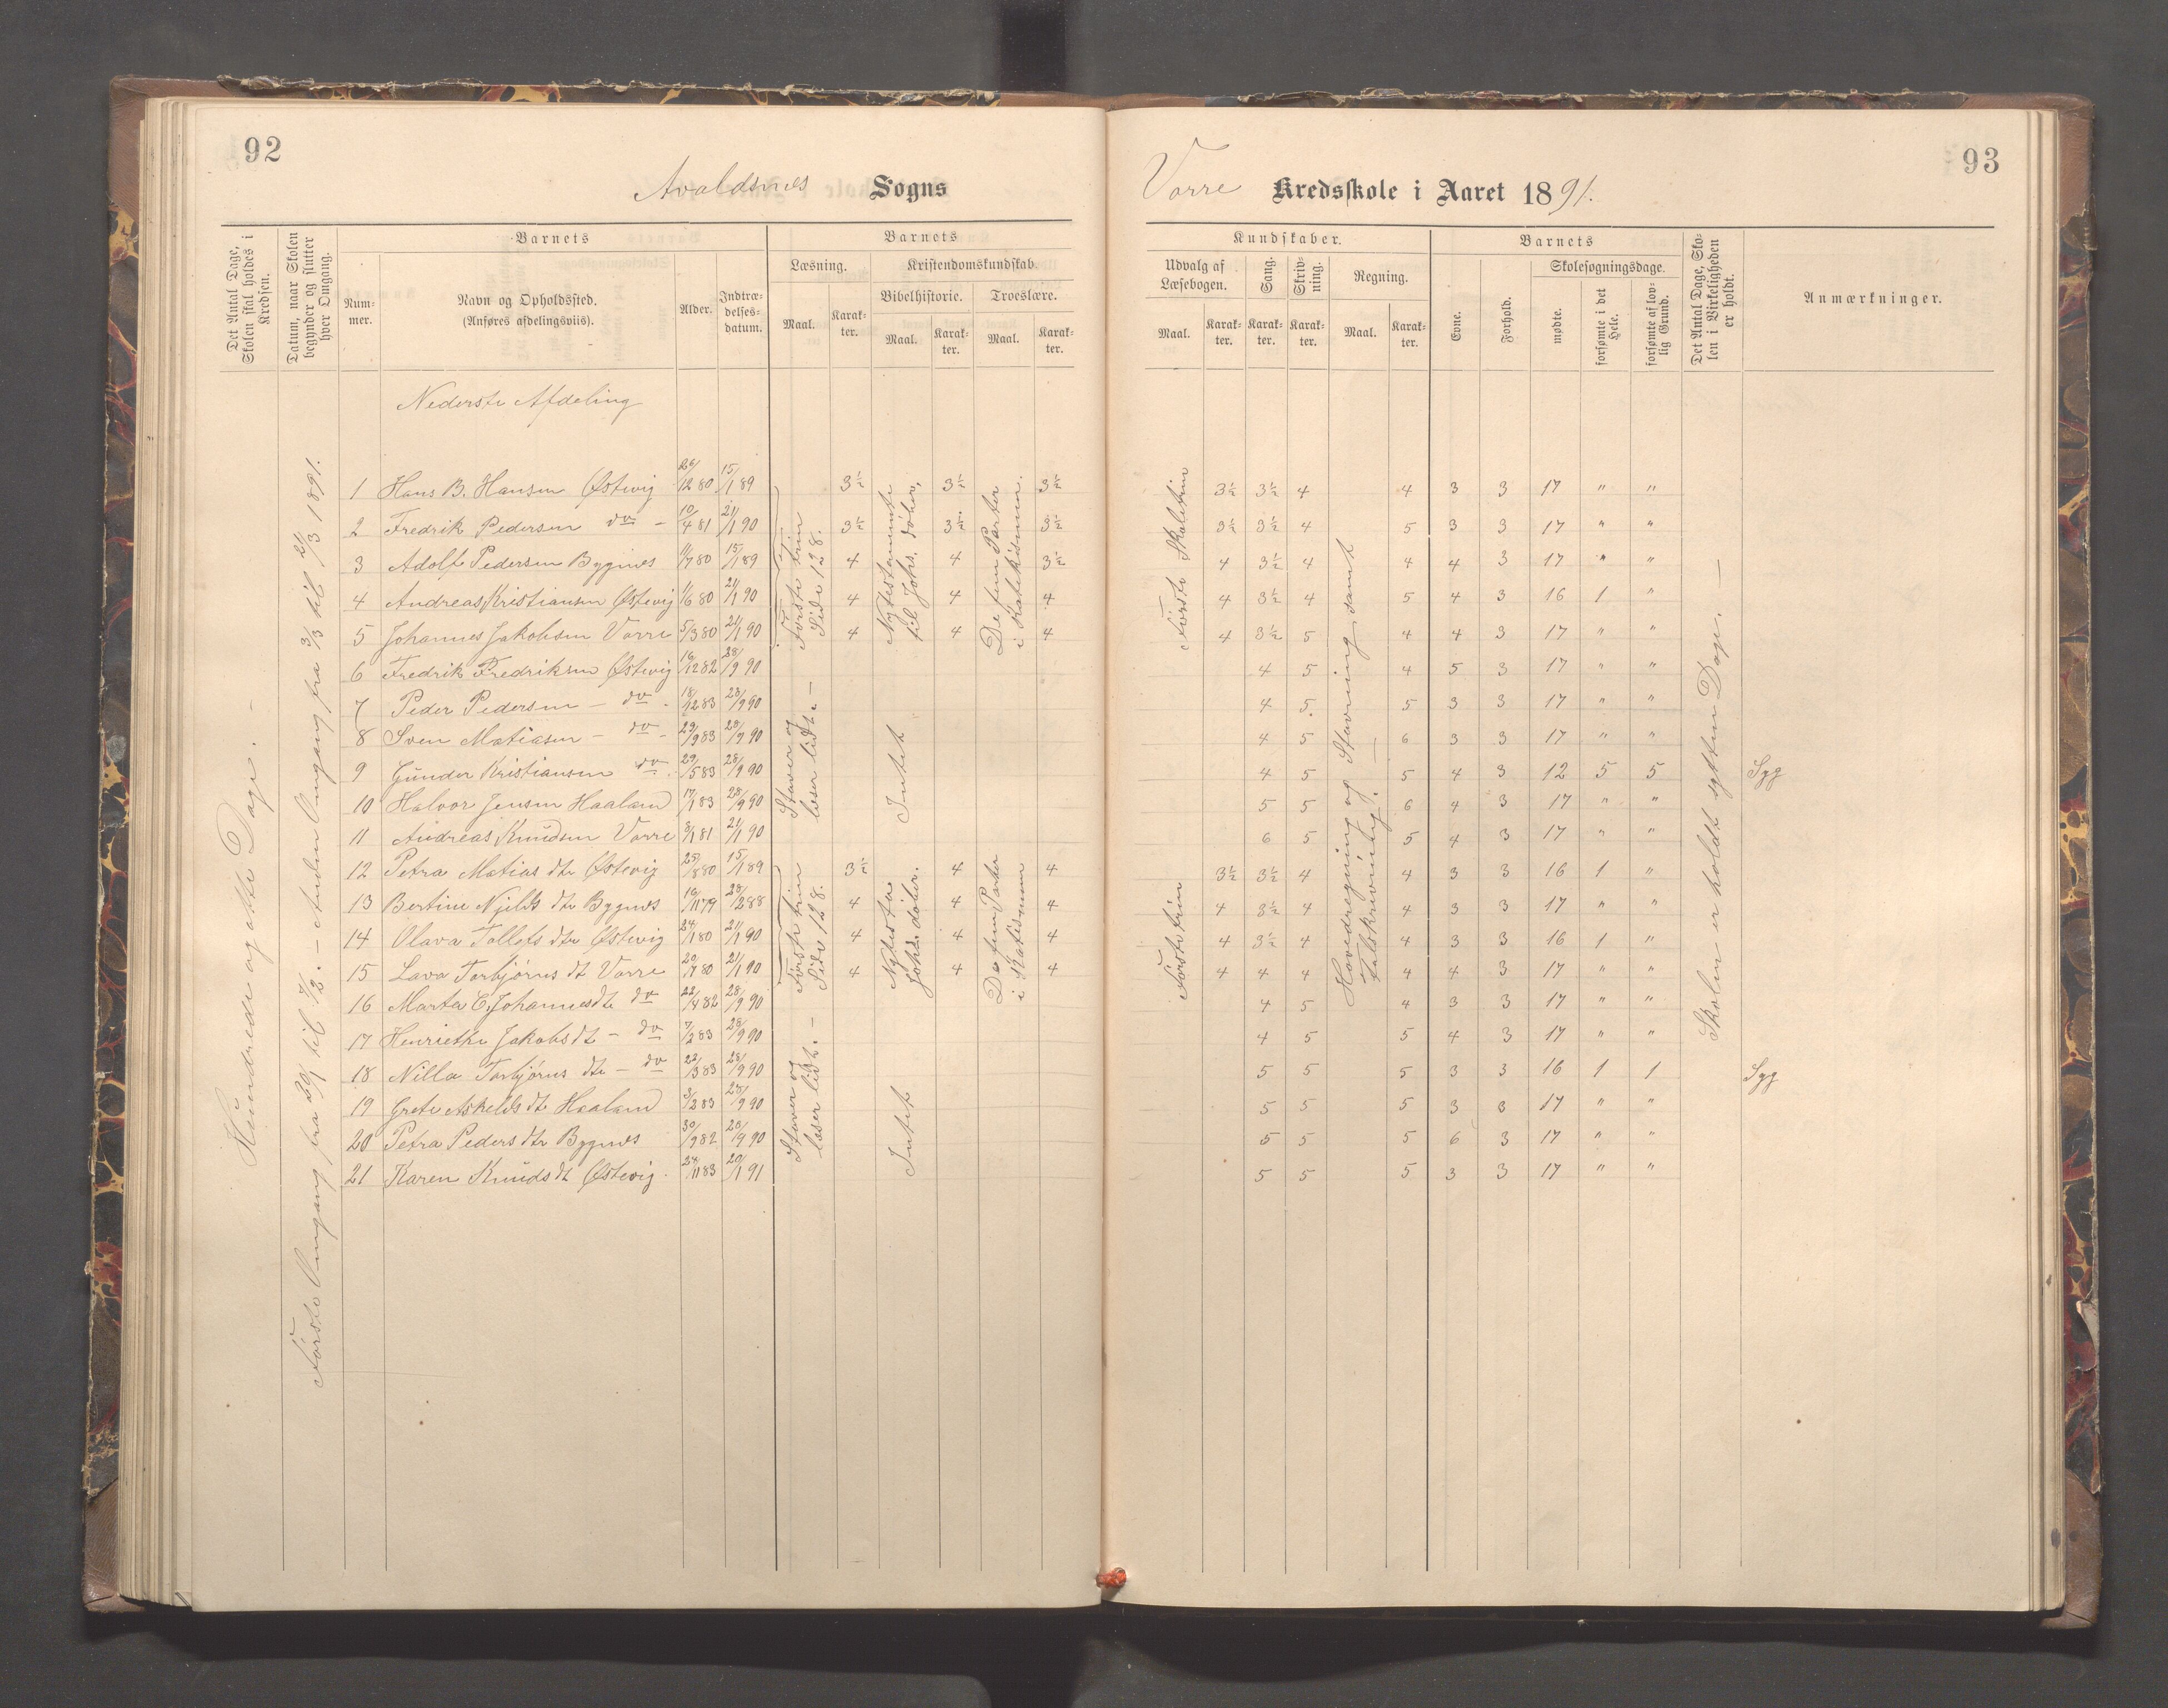 92
Avaldsnes Sogns
Det Antal Dage, Skolen skal holdes i Kredsen.
Datum, naar Skolen begynder og slutter hver Omgang.
Barnets
Num-mer.
Navn og Opholdssted.
(Anføres afdelingsviis).
Alder.
Indtræ-delses-datum.
Barnets
Læsning.
Kristendomskundskab.
Bibelhistorie.
Troeslære.
Maal.
Karak-ter.
Maal.
Karak-ter.
Maal.
Karak-ter.
Hundrede og otte Dage. –
Første Omgang fra 20/1 til 7/2. – Anden Omgang fra 3/3 til 21/3 1891.
Nederste Afdeling
1 Hans B. Hansen Østevig 26/12 80 15/1 89 3½ 3½ 3½
2 Fredrik Pedersen do – 10/4 81 21/1 90 3½ 3½ 3½
3 Adolf Pedersen Bygnes 11/7 80 15/1 89 4 4 3½
4 Andreas Kristiansen Østevig 1/6 80 21/1 90 4 4 4
5 Johannes Jakobsen Vorre 5/3 80 21/1 90 4 4 4
6 Fredrik Fredriksen Østevig 16/12 82 28/9 90
7 Peder Pedersen – do 18/12 83 28/9 90
8 Sven Matiasen – do 29/9 83 28/9 90
9 Gunder Kristiansen do 29/5 83 28/9 90
10 Halvor Jensen Haaland 17/1 83 28/9 90
11 Andreas Knudsen Vorre 8/1 81 21/1 90
12 Petra Matias dtr Østevig 25/8 80 15/1 89 3½ 4 4
13 Bertine Njelds dtr Bygnes 16/11 79 28/2 88 4 4 4
14 Olava Tollefs dtr Østevig 24/1 80 21/1 90 4 4 4
15 Lava Torbjørns dt Vorre 20/7 80 21/1 90 4 4 4
16 Marta E. Johannesdt do 22/4 82 28/9 90
17 Henriette Jakobs dt – do 7/2 83 28/9 90
18 Nilla Torbjørns dtr – do 22/3 83 28/9 90
19 Grete Askelds dt Haaland 3/2 83 28/9 90
20 Petra Peders dtr Bygnes 30/9 82 28/9 90
21 Karen Knuds dt Østevig 24/11 83 20/1 91
Første trin
Side 128.
Nytestamente
til Johs. døber,
De fem Parter
i Katekismen.
Staver og
læser lidt. –
Intet
Første trin
Side 128.
Nytesta.
Johs. døber.
De fem Parter
i Katismen
Staver og
læser lidt. –
Intet
93
Vorre Kredsskole i Aaret 1891.
Kundskaber.
Udvalg af Læsebogen.
Sang.
Skriv-ning.
Regning.
Maal.
Karak-ter.
Karak-ter.
Karak-ter.
Maal.
Karak-ter.
Barnets
Evne.
Forhold.
Skolesøgningsdage.
mødte.
forsømte i det Hele.
forsømte af lov-lig Grund.
Det Antal Dage, Sko-len i Virkeligheden er holdt.
Anmærkninger.
3½ 3½ 4 4 3 3 17 " "
3½ 3½ 4 5 3 3 17 " "
4 3½ 4 4 4 3 17 " "
4 3½ 4 5 4 3 16 1 "
4 3½ 5 4 4 3 17 " "
4 5 4 5 3 17 " "
4 5 5 3 3 17 " "
4 5 6 3 3 17 " "
4 5 5 4 3 12 5 5 Syg
5 5 6 4 3 17 " "
6 5 5 4 3 17 " "
3½ 3½ 4 4 3 3 16 1 "
4 3½ 4 4 3 3 17 " "
4 3½ 4 4 3 3 16 1 "
4 4 4 4 4 3 17 " "
4 5 4 3 3 17 " "
4 5 5 4 3 17 " "
5 5 5 3 3 16 1 1 Syg
5 5 5 3 3 17 " "
5 5 5 6 3 17 " "
5 5 5 3 3 17 " "
Første Skoletrin
Første trin
Hovedregning og Stavning, samt
Talskrivning. –
Skolen er holdt sytten Dage. –